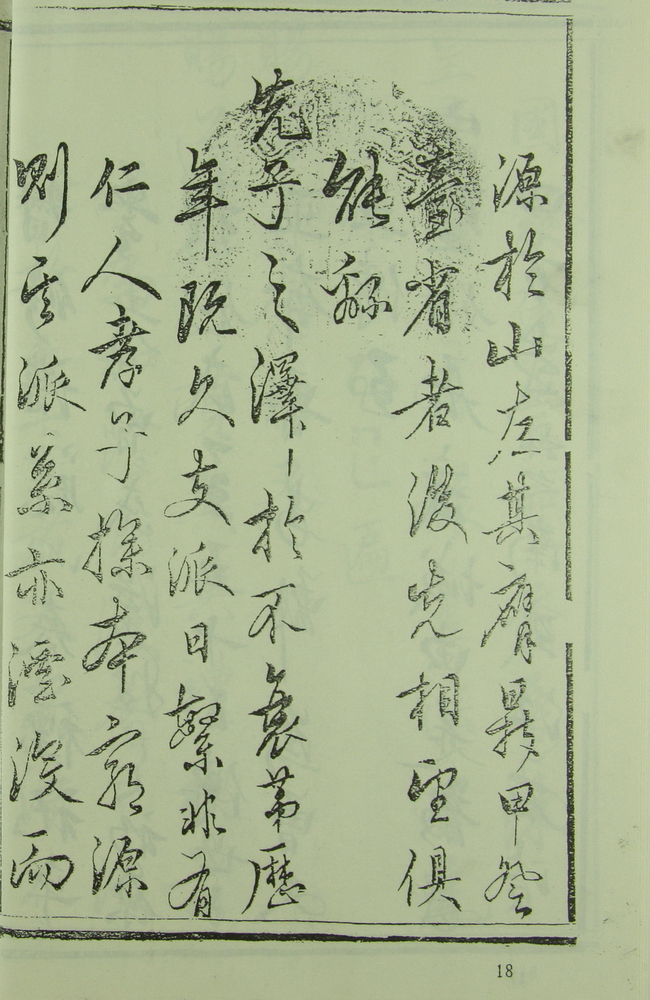 源於山左其膺巍甲登
臺省者後先相望俱
能繇
先子之澤於不衰第歷
年既久支派日繁非有
仁人孝子探本窮源
則宗派系亦湮沒而
18